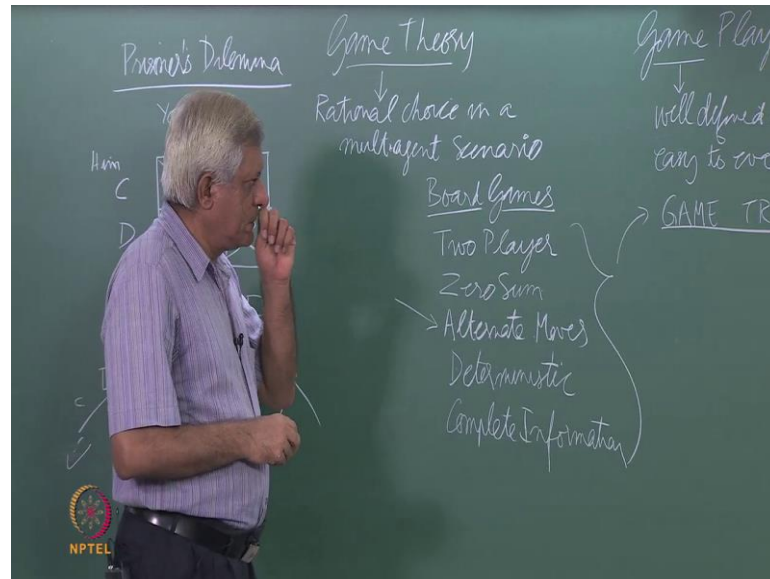 Prisoner's Dilemma
Yo
Him
C
D
c
Game Theory
Rational choice in a
multiagent scenario
Board Games
Two Player
Zero Sum
Alternate Moves
Deterministic
Complete Information
Game Play
well defined
easy to eve
GAME TR
NPTEL